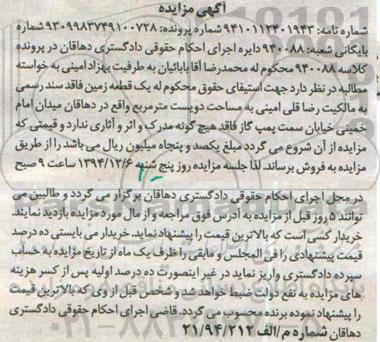 آگهی مزایده
شماره نامه: ۹۴۱۰۱۱۲۴۰۱۹۴۳ شماره پرونده: ۹۳۰۹۹۸۳۷۴۹۱۰۰۷۲۸ شماره
بایگانی شعبه: ۹۴۰۰۸۸ دایره اجرای احکام حقوقی دادگستری دهاقان در پرونده
کلاسه ۹۴۰۰۸۸ محکوم له محمدرضا آقا بابائیان به طرفیت بهزاد امینی به خواسته
مطالبه در نظر دارد جهت استیفای حقوق محکوم له یک قطعه زمین فاقد سند رسمی
به مالکیت رضا قلی امینی به مساحت دویست مترمربع واقع در دهاقان میدان امام
خمینی خیابان سمت پمپ گاز فاقد هیچ گونه مدرک و اثر و آثاری ندارد و قیمتی که
مزایده از آن شروع می گردد مبلغ یکصد و پنجاه میلیون ریال می باشد را از طریق
مزایده به فروش برساند. لذا جلسه مزایده روز پنج شنبه ۱۳۹۴/۱۲/۶ ساعت ۹ صبح
در محل اجرای احکام حقوقی دادگستری دهاقان برگزار می گردد و طالبین می
توانند ۵ روز قبل از مزایده به آدرس فوق مراجعه و از مال مورد مزایده بازدید نمایند.
خریدار کسی است که بالاترین قیمت را پیشنهاد نماید. خریدار می بایستی ده درصد
قیمت پیشنهادی را فی المجلس و مابقی را ظرف یک ماه از تاریخ مزایده به حساب
سپرده دادگستری واریز نماید در غیر اینصورت ده درصد اولیه پس از کسر هزینه
های مزایده به نفع دولت ضبط خواهد شد و شخص قبل از وی که بالاترین قیمت
را پیشنهاد نموده برنده محسوب می گردد. قاضی اجرای احکام حقوقی دادگستری
دهاقان شماره م/الف ۲۱/۹۴/۲۱۲